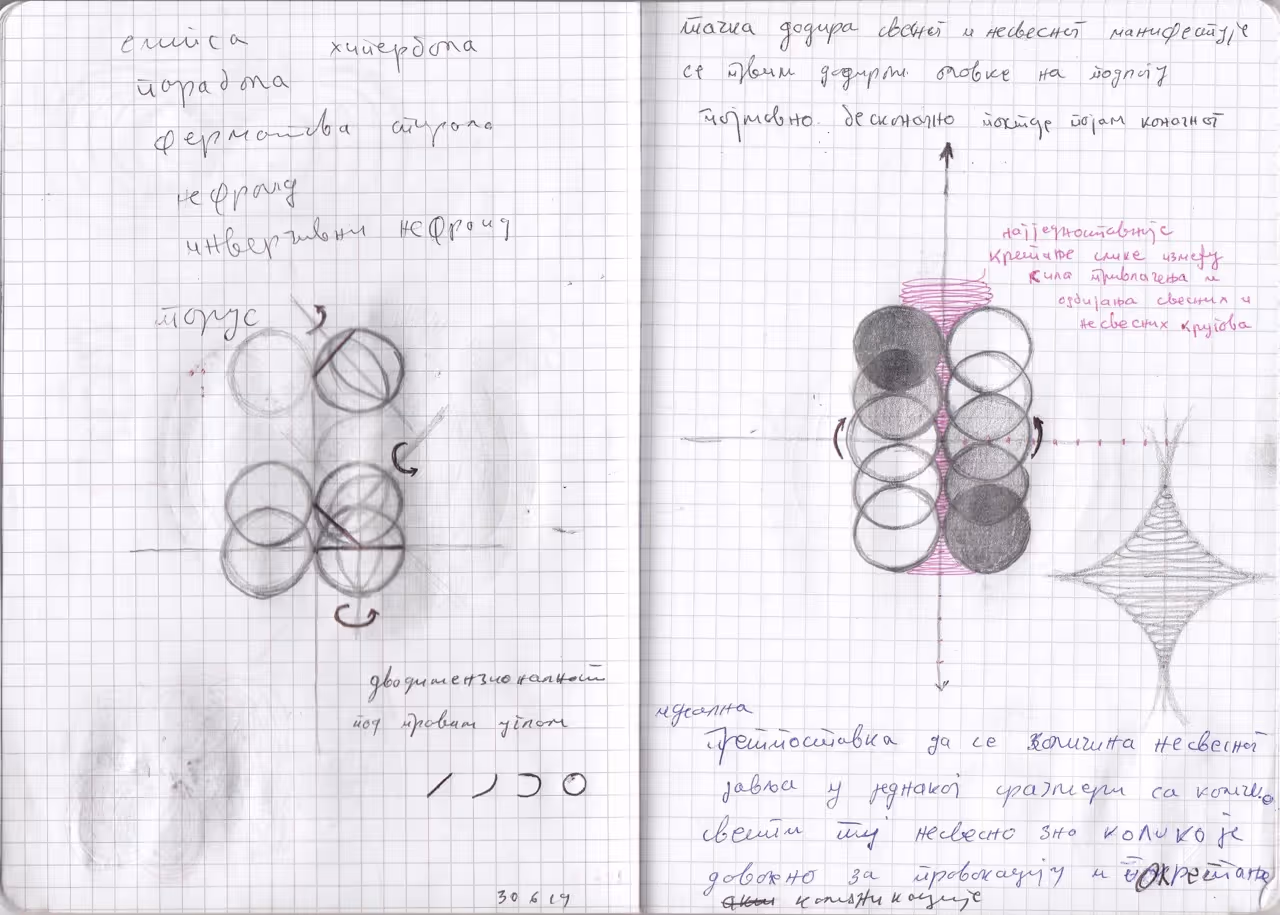 елипса хипербола
парабола
Ферматова спирала
нефроид
инверзивни нефроид
торус
дводимензионалност
под правим углом
30 6 19
тачка додира свесног и несвесног манифестује
се првим додиром оловке на подлогу
појмовно бесконачно постаје појам коначног
најједноставније
кретање слике између
сила привлачења и
одбијања свесних и
несвесних кругова
идеална
Претпоставка да се количина несвесног
јавља у једнакој сразмери са
свести тј несвесно зна колико је
довољно за провокацију и покретање
комуникације